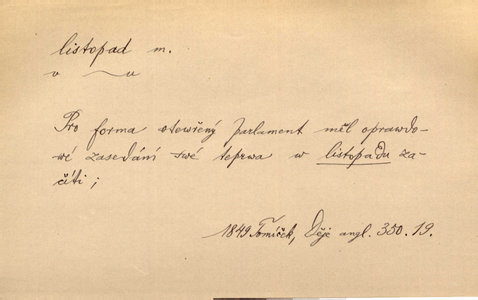 listopad m.
v ~ u
Pro forma otewřený parlament měl oprawdo-
wé zasedání swé teprwa w listopadu za-
číti;
1849 Tomíček, Děje angl. 350.19.